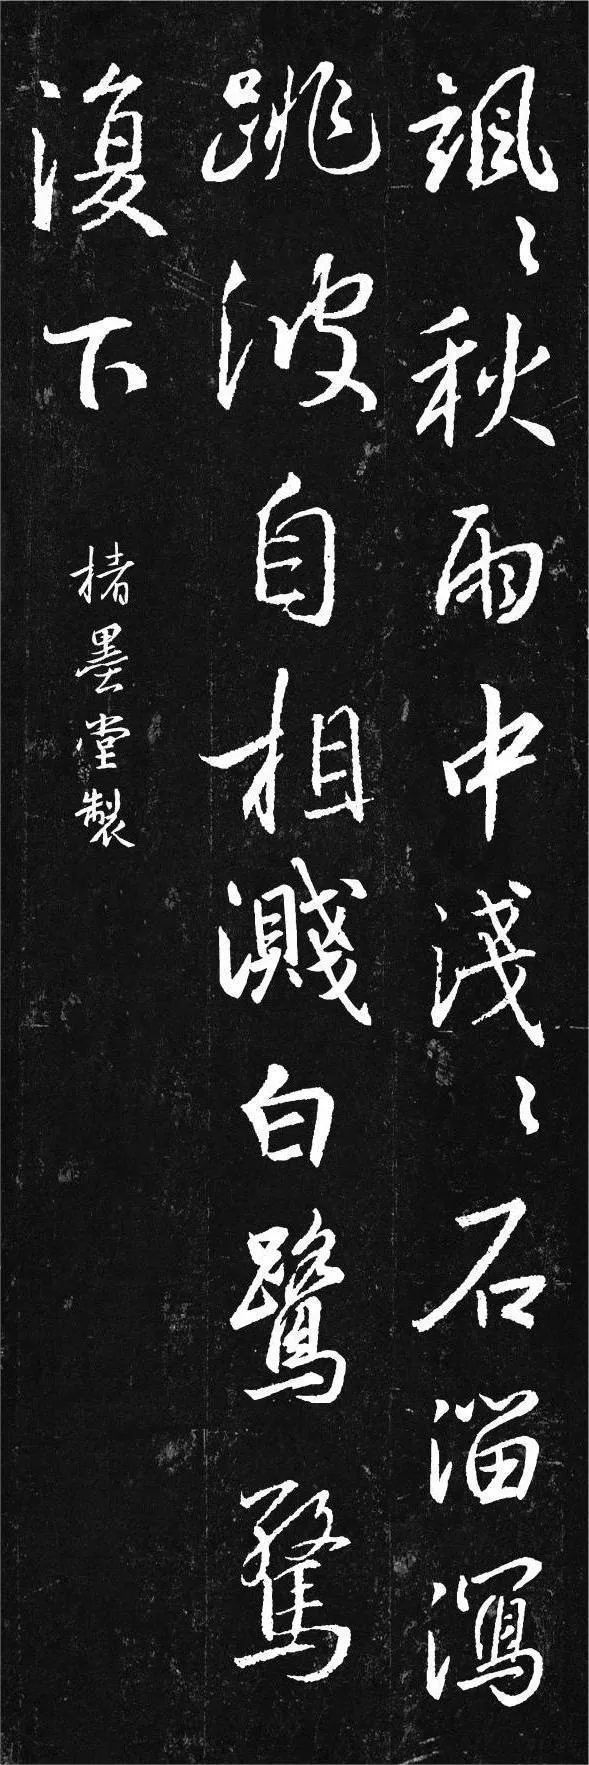 颯〻秋雨中淺〻石溜瀉
跳波自相濺白鷺騖
復下
楮墨堂製